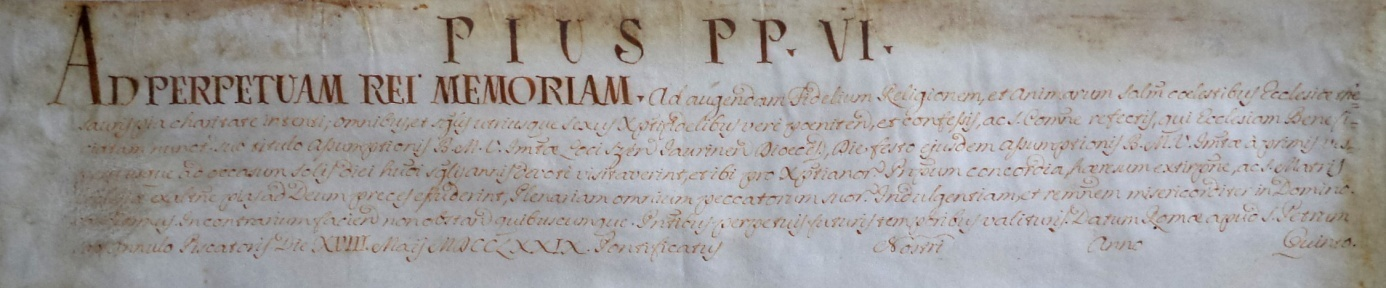 PIUS PP. VI.
AD PERPETUAM REI MEMORIAM. Ad augendam Fidelium Religionem, et Animarum Salut̃ coelestibus Ecclesiae The=
sauris pia charitate intenti, omnibus, et sglis utriusque sexus Xptifidelibus vere poeniten̄, et confessis, ac S. Comne refectis, qui Ecclesiam Benefi=
ciatam nunct. sub titulo Assumptionis B. M. V. Imtae Loci Jaurinen̄ Dioec̄, Die festo ejusdem Assumptionis B. M. V. Imtae à primis
usque ad occasum solis diei huōi sglis annis devote visitaverint, et ibi pro Xptianor̄ Prpum concordia, haeresum extirpne, ac S. Matris
Ecclesiae exaltne pias ad Deum preces effuderint, Plenariam omnium peccatorum suor̄ Indulgentiam, et remnem misericorditer in Domino
In contrarium facien̄ non obstan̄ quibuscumque. Pntibus perpetuis futuris temporibus valituris. Datum Romae apud S. Petrum
Annulo Piscatoris Die XVIII. Maij MDCCLXXIX. Pontificatus Nostri Anno Quinto.